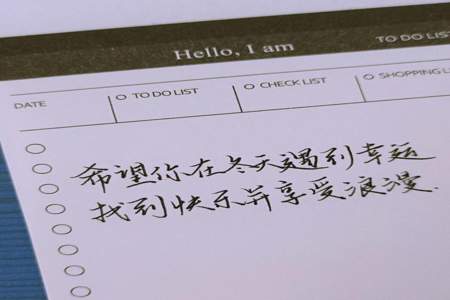 Hello, I am
TO DO LIST
DATE
TO DO LIST
CHECK LIST
SHOPPING L
希望你在冬天遇到幸运
找到快乐并享受浪漫.